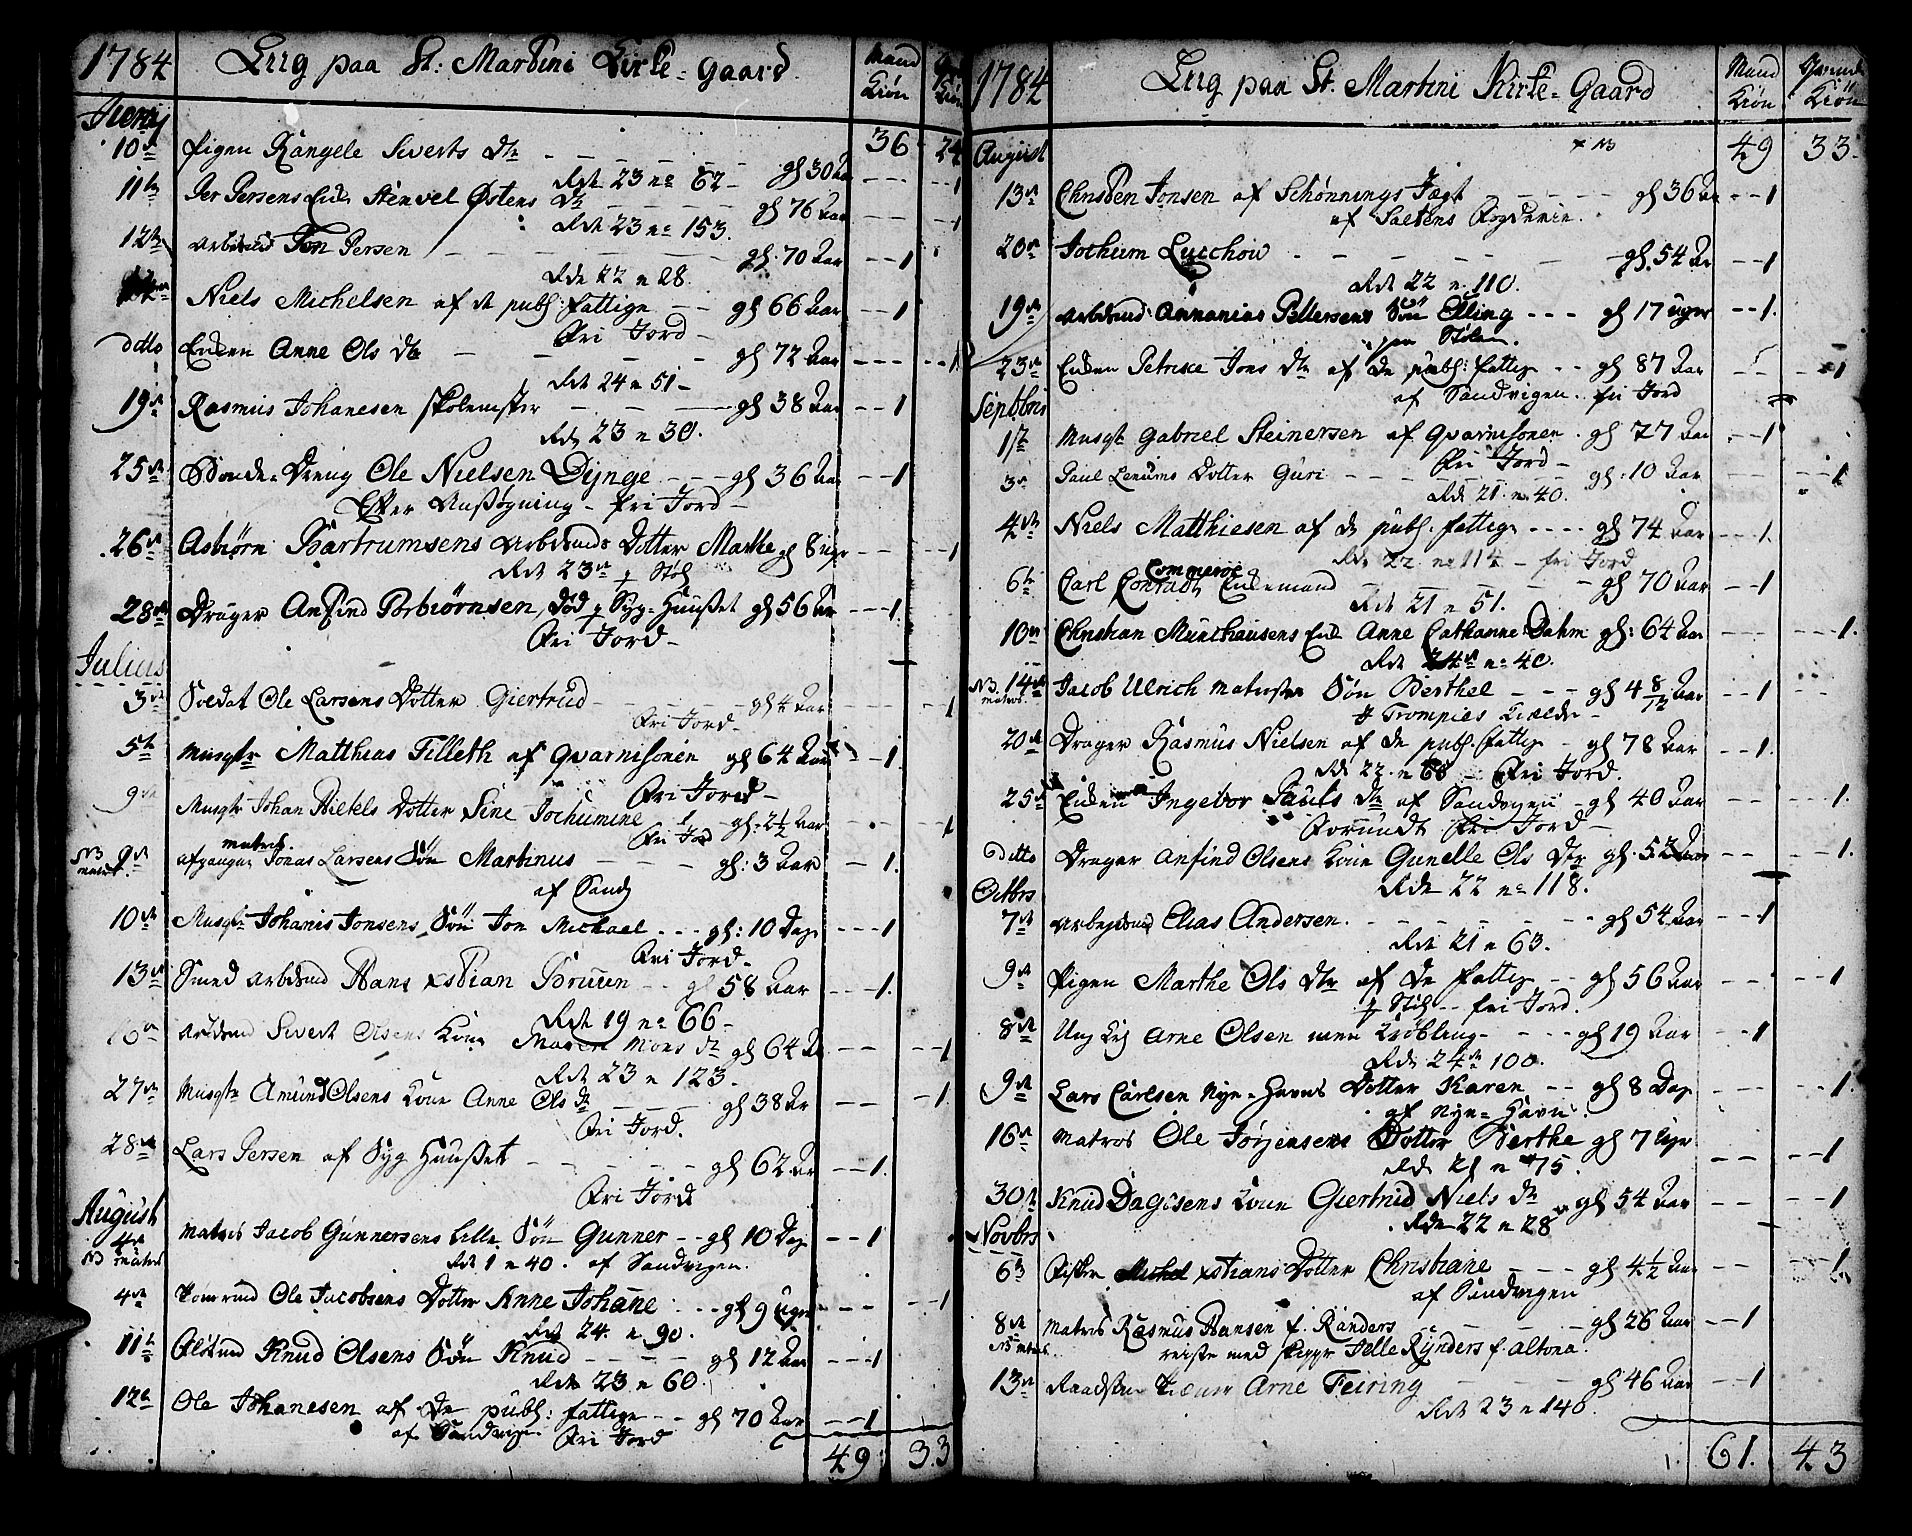 1784 Liig paa St: Martini Kirke-gaard Mand Kiøn
10de Pigen Rangele Siverts dtr gl 30 Aar
Rde 23 no 62
11te Per Persens Enke Stenvel Østens dtr gl 76 Aar
Rde 23 no 153.
12te Arbdsmd Jon Persen gl. 70 Aar 1
Rde 22 n 28.
Niels Michelsen af de publ: fattige gl 66 Aar 1
Fri Jord
ditto Enken Anne Ols dtr gl 72 Aar 1
Rde 24 n 51
19de Rasmus Johanesen skolemster gl 38 Aar 1
Rde 23 n 30.
25de Bonde-Dreng Ole Nielsen Dynge gl 36 Aar 1
Efter Ansøgning - fri Jord
26de Asbiørn Bartrumsens Arbdsmds Dotter Marthe gl 8 uger 1
Rde 23de p Støl
28de Drager Anfind Torbiørnsen, død p Syg-Huuset gl 56 Aar 1.
Fri Jord
Julius
3de Soldat Ole Larsens Dotter Giertrud gl 4 Aar 1
Fri Jord
5te Musqtr Matthias Tilleth af Qvarnisonen gl 64 Aar 1.
Fri Jord
9de Musqtr Johan Hietels Dotter Sine Jochumine gl: 2½ Aar 1
Fri Jord
matros
NB 9de afgangne Jonas Larsens Søn Martinus gl: 3 Aar 1.
af Sandv
10de Musqtr Johanis Jonsens Søn Jon Michael gl: 10 Dage 1
Fri Jord
13de Smed Arbdsmd Hans xstian Bruun gl 58 Aar 1.
Rde 19 no 66
Arbdsmd Sivert Olsens Kone Maren Mons dtr gl 64 Aar 1
Rde 23 n 123.
27de Musqtr Amund Olsens Kone Anne Ols dtr gl 38 Aar 1
Fri Jord.
28de Lars Persen af Syg Huuset gl 62 Aar 1.
Fri Jord
August
4de Matros Jacob Gunnersens lille Søn Gunner gl 10 Dage 1
NB matros Rde 1 n 40. af Sandvigen.
4de Ole Jacobsens Dotter Anne Johane gl 9 uger 1
Rde 24. n 90.
11te Knud Olsens Søn Knud gl 12 Aar 1
Rde 23 n 60
12te Ole Johanesen af de publ: fattige gl 70 Aar 1
af Sandvigen Fri Jord
49 33
1784 Liig paa St. Martini Kirke-Gaard Mand Kiøn Qvinde Kiøn
August NB 49 33.
13de Christen Jonsen af Schønnings Jægt gl 36 Aar 1
af Saltens Fogderie.
20de Jochum Lucchow gl. 54 Aar 1
Rde 22 n. 110.
19de Arbdsmd Annanias Pettersens Søn Elling gl 17 uger 1.
paa Stølen.
23de Enken Petrike Jons dtr af de publ: fattige gl 87 Aar 1
af Sandvigen. fri Jord
Septbris
1ste Musqtr Gabriel Steinersen af Qvarnisonen gl 77 Aar 1
Fri Jord
3de Paul Dotter Guri gl: 10 Aar 1
Rde 21. n. 40.
4de Niels Matthiesen af de publ. fattige gl 74 Aar 1.
Rde 22 no 114 - fri Jord
Commerce
6te Carl Conradt Enkemand gl 70 Aar 1
Rde 21 n 51.
10de Christian Munthausens Enke Anne Cathanne Dahm gl: 64 Aar 1.
Rde 24de no 40.
NB. 14de Jacob Ulrich Matrosses Søn Berthel gl 4 8/12 Aar 1
matros. p Trompies Kielder
20de Drager Rasmus Nielsen af de publ. fattige gl 78 Aar 1.
Rde 22 n 68 - Fri Jord.
25de Enken Ingebor Pauls dtr af Sandvigen gl 40 Aar 1.
Forundt Fri Jord
ditto Drager Anfind Olsens Kone Gunelle Ols dtr gl. 52 Aar 1.
Rde 22 no 118.
Octbrs
7de Arbejdsmd Elias Andersen gl 54 Aar 1
Rde 21 n 63.
9de Pigen Marthe Ols dtr af de fattige gl 56 Aar 1
p Støl - fri Jord.
8de Ung Arne Olsen gl 19 Aar 1
Rde 24de 100.
9de Lars Carlsen Nye-Havns Dotter Karen gl 8 Dage 1.
af Nye-Havn
16de Matros Ole Jørgensens Dotter Berthe gl 7 uger 1
Rde 21 n 75.
30te Knud Dagisens Kone Giertrud Niels dtr gl 54 Aar 1
Rde 22 n 28
Novbrs
6te Fisker Michel xstians Dotter Christiane gl 4½ Aar 1
af Sandvigen
8de Matros Rasmus Hansen f. Randers gl 26 Aar 1
NB matros. reiste med skipper Jelle Rynders f. Altona.
13de Raadstue Arne Feiring gl 46 Aar 1
Rde 23 n 140
61. 43